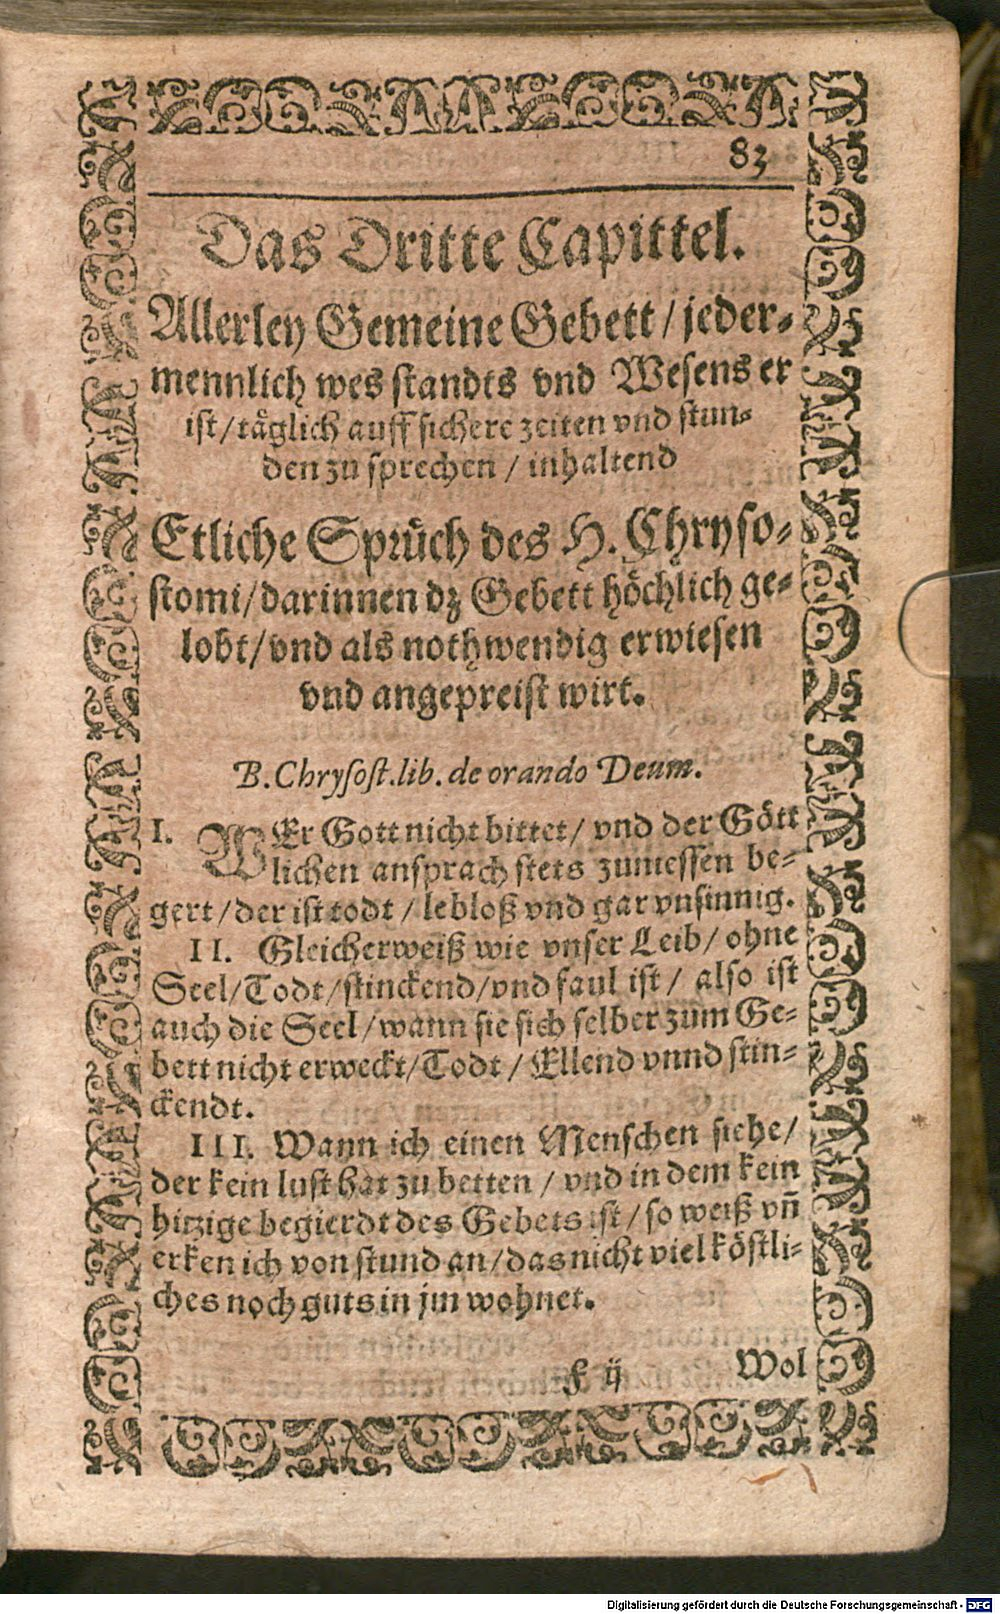 83
Das Dritte Capittel.
Allerley Gemeine Gebett / jeder-
mennlich wes standts vnd Wesens er
ist / täglich auff sichere zeiten vnd stun-
den zu sprechen / inhaltend
Etliche Sprüch des H. Chryso-
stomi / darinnen dz Gebett höchlich ge-
lobt / vnd als nothwendig erwiesen
vnd angepreist wirt.
B. Chrysost. lib. de orando Deum.
I. WEr Gott nicht bittet / vnd der Gött
lichen ansprach stets zuniessen be-
gert / der ist todt / lebloß vnd gar vnsinnig.
II. Gleicherweiß wie vnser Leib / ohne
Seel / Todt / stinckend / vnd faul ist / also ist
auch die Seel / wann sie sich selber zum Ge-
bett nicht erweckt / Todt / Ellend vnnd stin-
ckendt.
III. Wann ich einen Menschen siehe /
der kein lust hat zu betten / vnd in dem kein
hitzige begierdt des Gebets ist / so weiß vñ
erken ich von stund an / das nicht viel köstli-
ches noch guts in jm wohnet.
F ij
Wol
Digitalisierung gefördert durch die Deutsche Forschungsgemeinschaft - DFG